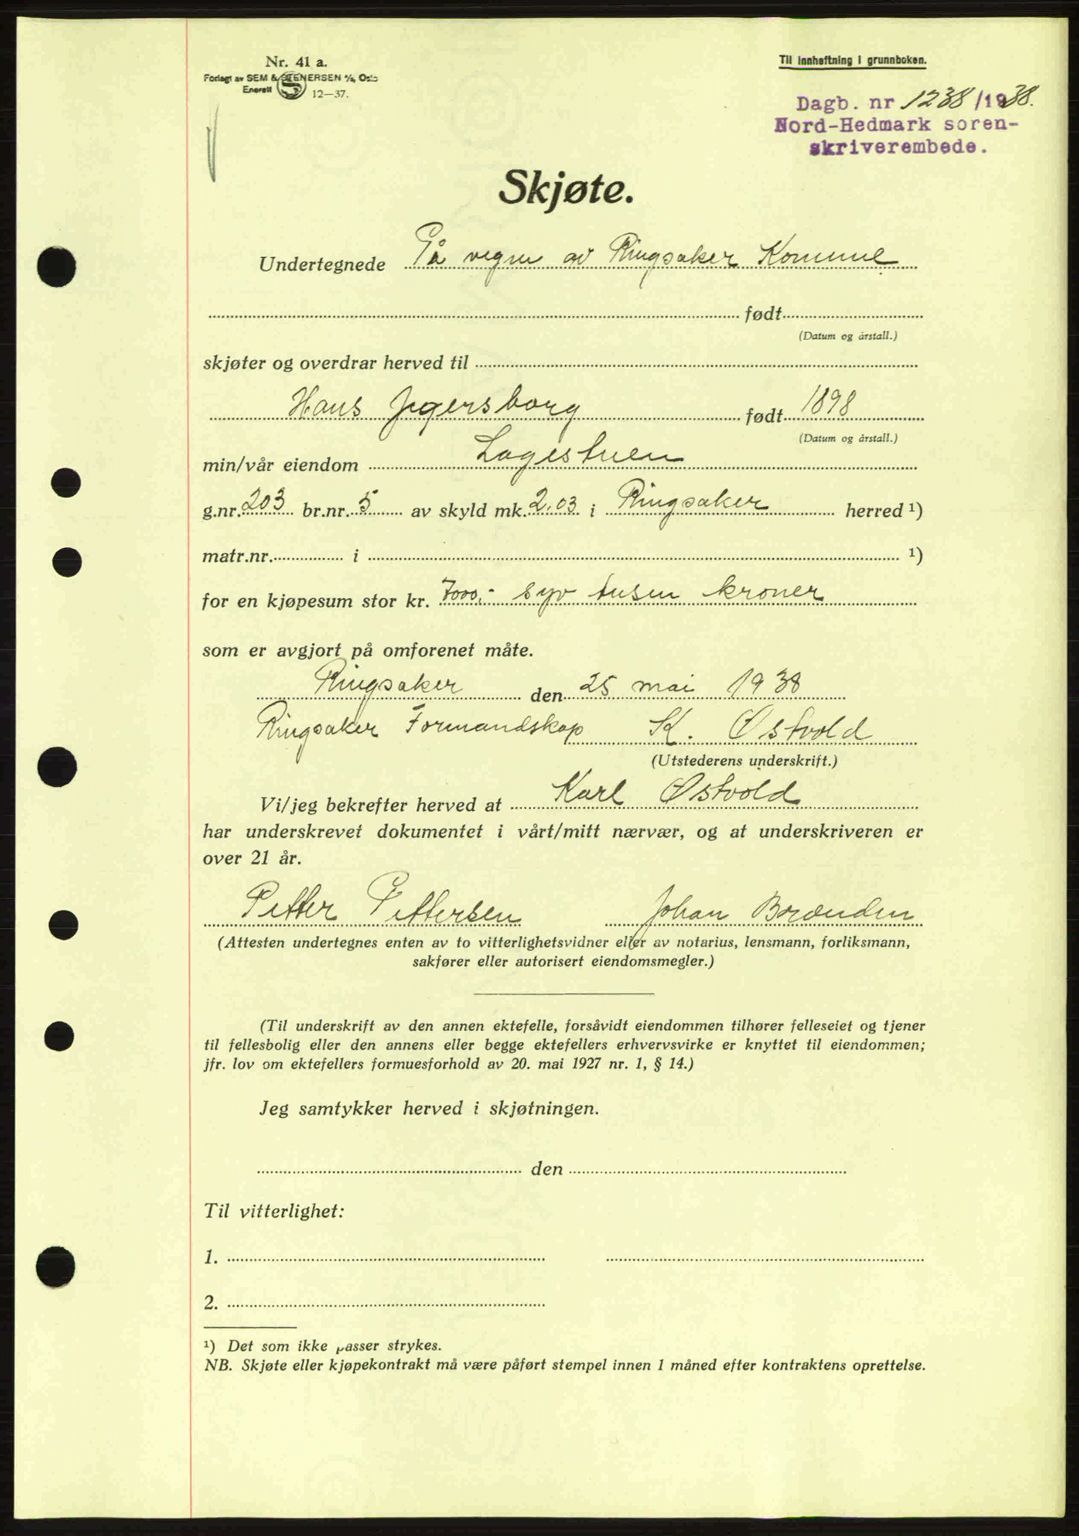 Nr. 41 a.
Forlagt av SEM & STENERSEN A/S, Oslo
Enerett 12-37.
Til innheftning i grunnboken.
Dagb. nr 1238/1938.
Nord-Hedmark soren-
skriverembede.
Skjøte.
Undertegnede På vegne av Ringsaker Kommune
født
(Datum og årstall.)
skjøter og overdrar herved til
Hans Jegersborg født 1898
(Datum og årstall.)
min/vår eiendom Lagestuen
g.nr. 203 br.nr. 5 av skyld mk. 2.03 i Ringsaker herred ¹)
matr.nr. i ¹)
for en kjøpesum stor kr. 7000,- syv tusen kroner
som er avgjort på omforenet måte.
Ringsaker den 25 mai 1938
Ringsaker Formandskap K. Østvold
(Utstederens underskrift.)
Vi/jeg bekrefter herved at Karl Østvold
har underskrevet dokumentet i vårt/mitt nærvær, og at underskriveren er
over 21 år.
Petter Pettersen Johan Brænden
(Attesten undertegnes enten av to vitterlighetsvidner eller av notarius, lensmann, forliksmann,
sakfører eller autorisert eiendomsmegler.)
(Til underskrift av den annen ektefelle, forsåvidt eiendommen tilhører felleseiet og tjener
til fellesbolig eller den annens eller begge ektefellers erhvervsvirke er knyttet til eiendommen;
jfr. lov om ektefellers formuesforhold av 20. mai 1927 nr. 1, § 14.)
Jeg samtykker herved i skjøtningen.
den
Til vitterlighet:
1.
2.
¹) Det som ikke passer strykes.
NB. Skjøte eller kjøpekontrakt må være påført stempel innen 1 måned efter kontraktens oprettelse.